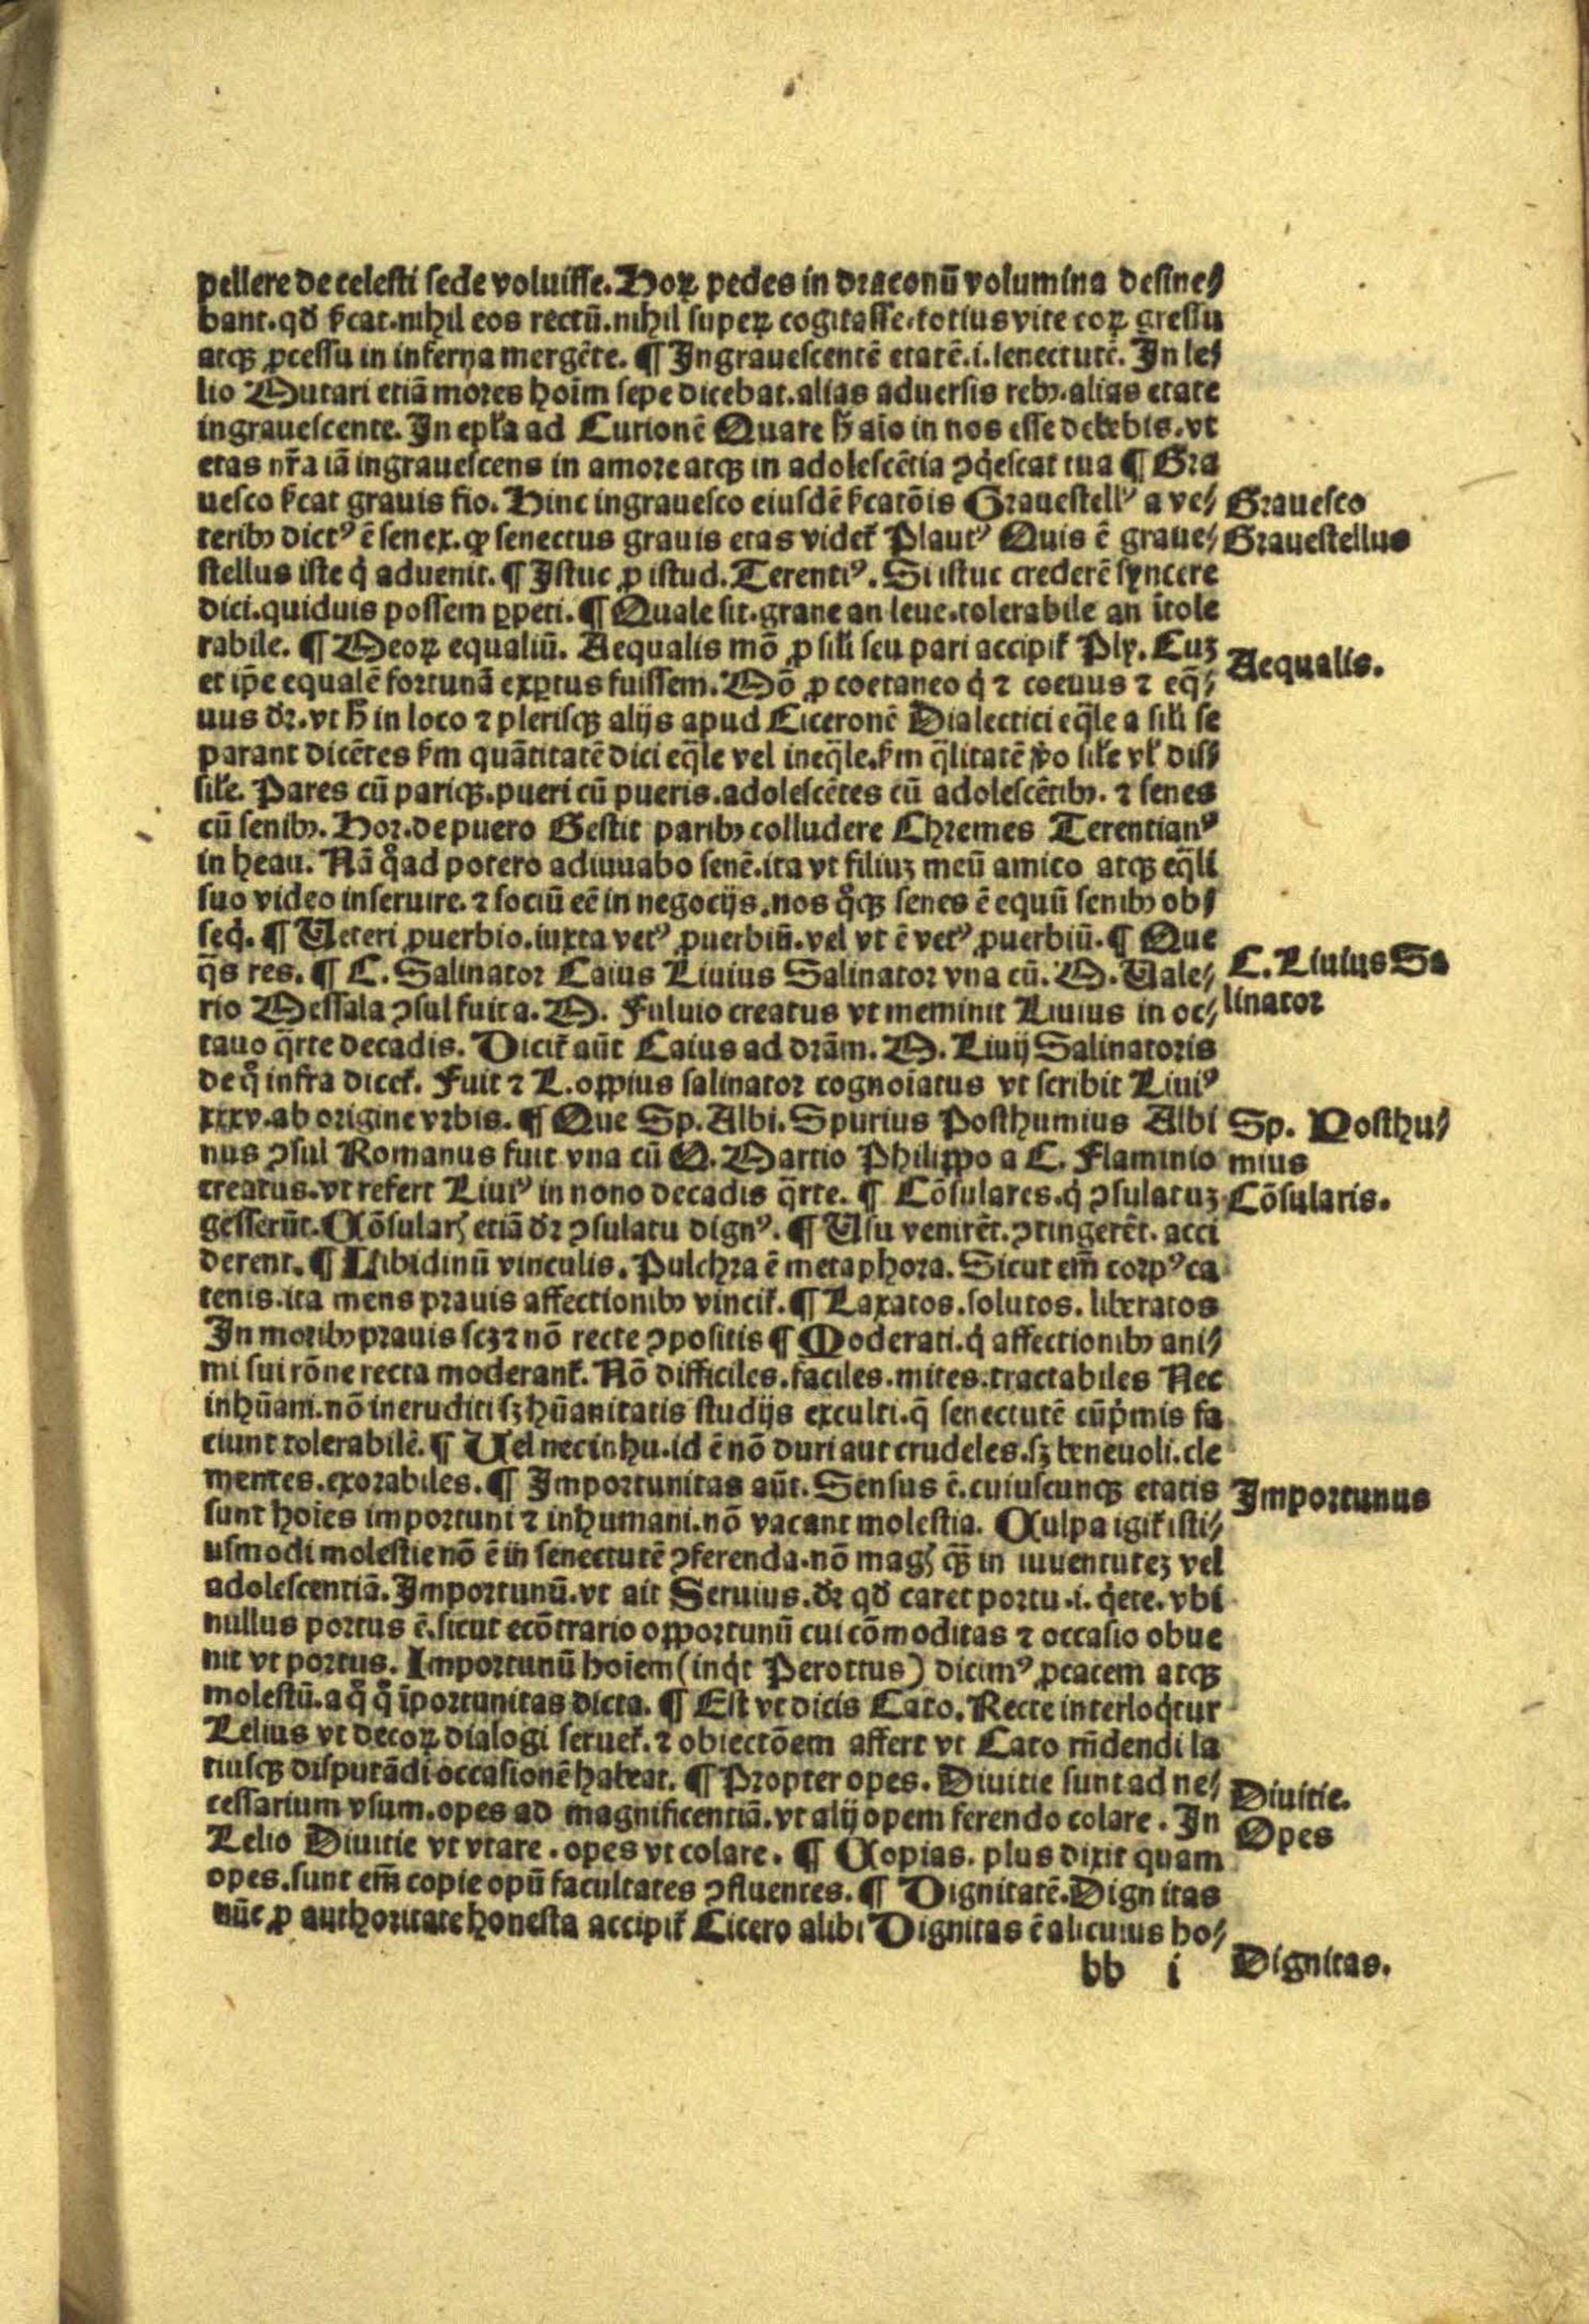 pellere de celesti sede voluisse. Hoꝝ pedes in draconū volumina desine⸗
bant. qđ ſ̄cat. nihil eos rectū. nihil superꝝ cogitasse. totius vite eoꝝ gressu
atqꝫ ꝓcessu in inferna mergēte. ¶ Ingrauescentē etatē. i. senectutē. In le⸗
lio Mutari etiā mores hoīm sepe dicebat. alias aduersis rebꝰ. alias etate
ingrauescente. In epl̄a ad Curionē Quare h̄ aīo in nos esse debebis. vt
etas nr̄a iā ingrauescens in amore atqꝫ in adolescētia ꝯq̇escat tua ¶ Gra
uesco ſ̄cat grauis fio. Hinc ingrauesco eiusdē ſ̄catōis Grauestellꝰ a ve⸗
Grauesco
teribꝰ dictꝰ ē senex. ꝙ senectus grauis etas videt᷑ Plautꝰ Quis ē graue⸗
Grauestellus
stellus iste q̇ aduenit. ¶ Istuc ꝓ istud. Terentiꝰ. Si istuc crederē syncere
dici. quiduis possem ꝑpeti. ¶ Quale sit. graue an leue. tolerabile an ītole
rabile. ¶ Meoꝝ equaliū. Aequalis mō ꝓ sili seu pari accipit᷑ Ply. Cuꝫ
Aequalis.
et ip̄e equalē fortunā exꝑtus fuissem. Mō ꝓ coetaneo q̇ ⁊ coeuus ⁊ eq̄⸗
uus dr̄. vt h̄ in loco ⁊ plerisqꝫ alijs apud Ciceronē Dialectici eq̄le a sili se
parant dicētes ſm quātitatē dici eq̄le vel ineq̄le. ſm q̄litatē ꝟo sil̄e vl̄ diss⸗
sil̄e. Pares cū pariqꝫ. pueri cū pueris. adolescētes cū adolescētibꝰ. ⁊ senes
cū senibꝰ. Hor. de puero Gestit paribꝰ colludere Chremes Terentianꝰ
in heau. Nā q̊ad potero adiuuabo senē. ita vt filiuꝫ meū amico atqꝫ eq̄li
suo video inseruire. ⁊ sociū eē in negocijs. nos q̊qꝫ senes ē equū senibꝰ ob⸗
seq̇. ¶ Veteri ꝓuerbio. iuxta vetꝰ ꝓuerbiū. vel vt ē vetꝰ ꝓuerbiū. ¶ Que
q̄s res. ¶ C. Salinator Caius Liuius Salinator vna cū. M. Vale⸗
C. Liuius Sa
rio Messala ꝯsul fuit a. M. Fuluio creatus vt meminit Liuius in oc⸗
linator
tauo q̄rte decadis. Dicit᷑ aūt Caius ad drām. M. Liuij Salinatoris
de q̊ infra dicet᷑. Fuit ⁊ L. oppius salinator cognoīatus vt scribit Liuiꝰ
xxxv. ab origine vrbis. ¶ Que Sp. Albi. Spurius Posthumius Albi
Sp. Posthu⸗
nus ꝯsul Romanus fuit vna cū Q. Martio Philippo a C. Flaminio
mius
creatus. vt refert Liuiꝰ in nono decadis q̄rte. ¶ Cōsulares. q̇ ꝯsulatuꝫ
Cōsularis.
gesserūt. Cōsularꝭ etiā dr̄ ꝯsulatu dignꝰ. ¶ Vsu venirēt. ꝯtingerēt. acci
derent. ¶ Libidinū vinculis. Pulchra ē metaphora. Sicut em̄ corpꝰ ca
tenis. ita mens prauis affectionibꝰ vincit᷑. ¶ Laxatos. solutos. liberatos
In moribꝰ prauis scꝫ ⁊ nō recte ꝯpositis ¶ Moderati. q̇ affectionibꝰ ani⸗
mi sui rōne recta moderant᷑. Nō difficiles. faciles. mites. tractabiles Nec
inhūani. nō ineruditi sꝫ hūanitatis studijs exculti. q̄ senectutē cūp̄mis fa
ciunt tolerabilē. ¶ Vel nec inhu. id ē nō duri aut crudeles. sꝫ beneuoli. cle
mentes. exorabiles. ¶ Importunitas aūt. Sensus ē. cuiuscunqꝫ etatis
Importunus
sunt hoīes importuni ⁊ inhumani. nō vacant molestia. Culpa igit᷑ isti⸗
usmodi molestie nō ē in senectutē ꝯferenda. nō magꝭ qꝫ̄ in iuuentuteꝫ vel
adolescentiā. Importunū. vt ait Seruius. dr̄ qđ caret portu. i. q̇ete. vbi
nullus portus ē. sicut ecōtrario opportunū cui cōmoditas ⁊ occasio obue
nit vt portus. Importunū hoīem (inq̇t Perottus) dicimꝰ ꝓcacem atqꝫ
molestū. a q̊ q̊ īportunitas dicta. ¶ Est vt dicis Cato. Recte interloq̇tur
Lelius vt decoꝝ dialogi seruet᷑. ⁊ obiectōem affert vt Cato rn̄dendi la
tiusqꝫ disputādi occasionē habeat. ¶ Propter opes. Diuitie sunt ad ne⸗
Diuitie.
cessarium vsum. opes ad magnificentiā. vt alij opem ferendo colare. In
Opes
Lelio Diuitie vt vtare. opes vt colare. ¶ Copias. plus dixit quam
opes. sunt em̄ copie opū facultates ꝯfluentes. ¶ Dignitatē. Dignitas
nūc ꝓ authoritate honesta accipit᷑ Cicero alibi Dignitas ē alicuius ho⸗
Dignitas.
bb i